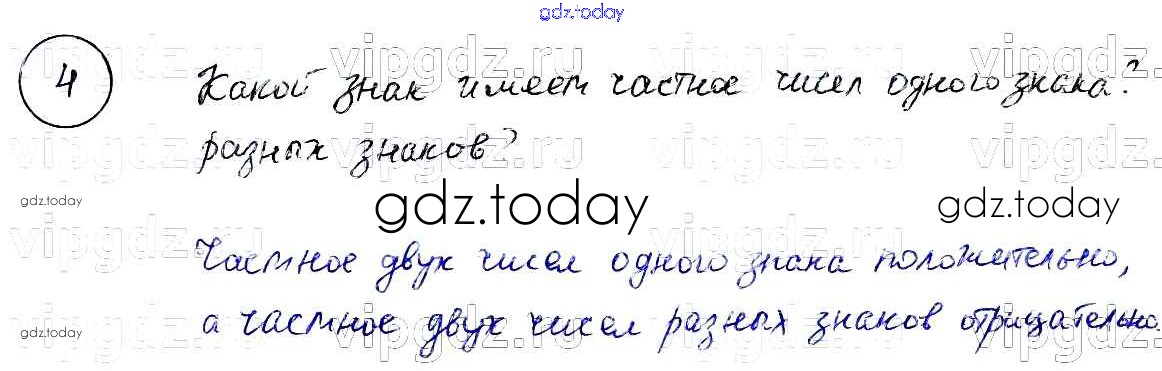 gdz.today
4 Какой знак имеет частное чисел одного знака?
разных знаков?
gdz.today gdz.today gdz.today
Частное двух чисел одного знака положительно,
gdz.today а частное двух чисел разных знаков отрицательно.
vipgdz.ru vipgdz.ru vipgdz.ru vipgdz.ru
vipgdz.ru vipgdz.ru vipgdz.ru vipgdz.ru
vipgdz.ru vipgdz.ru vipgdz.ru vipgdz.ru
vipgdz.ru vipgdz.ru vipgdz.ru vipgdz.ru